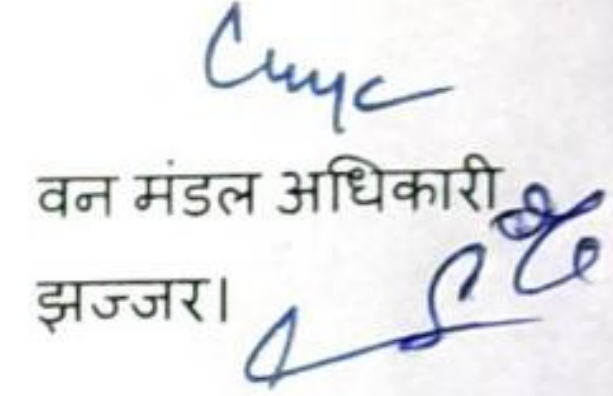 वन मंडल अधिकारी
झज्जर।